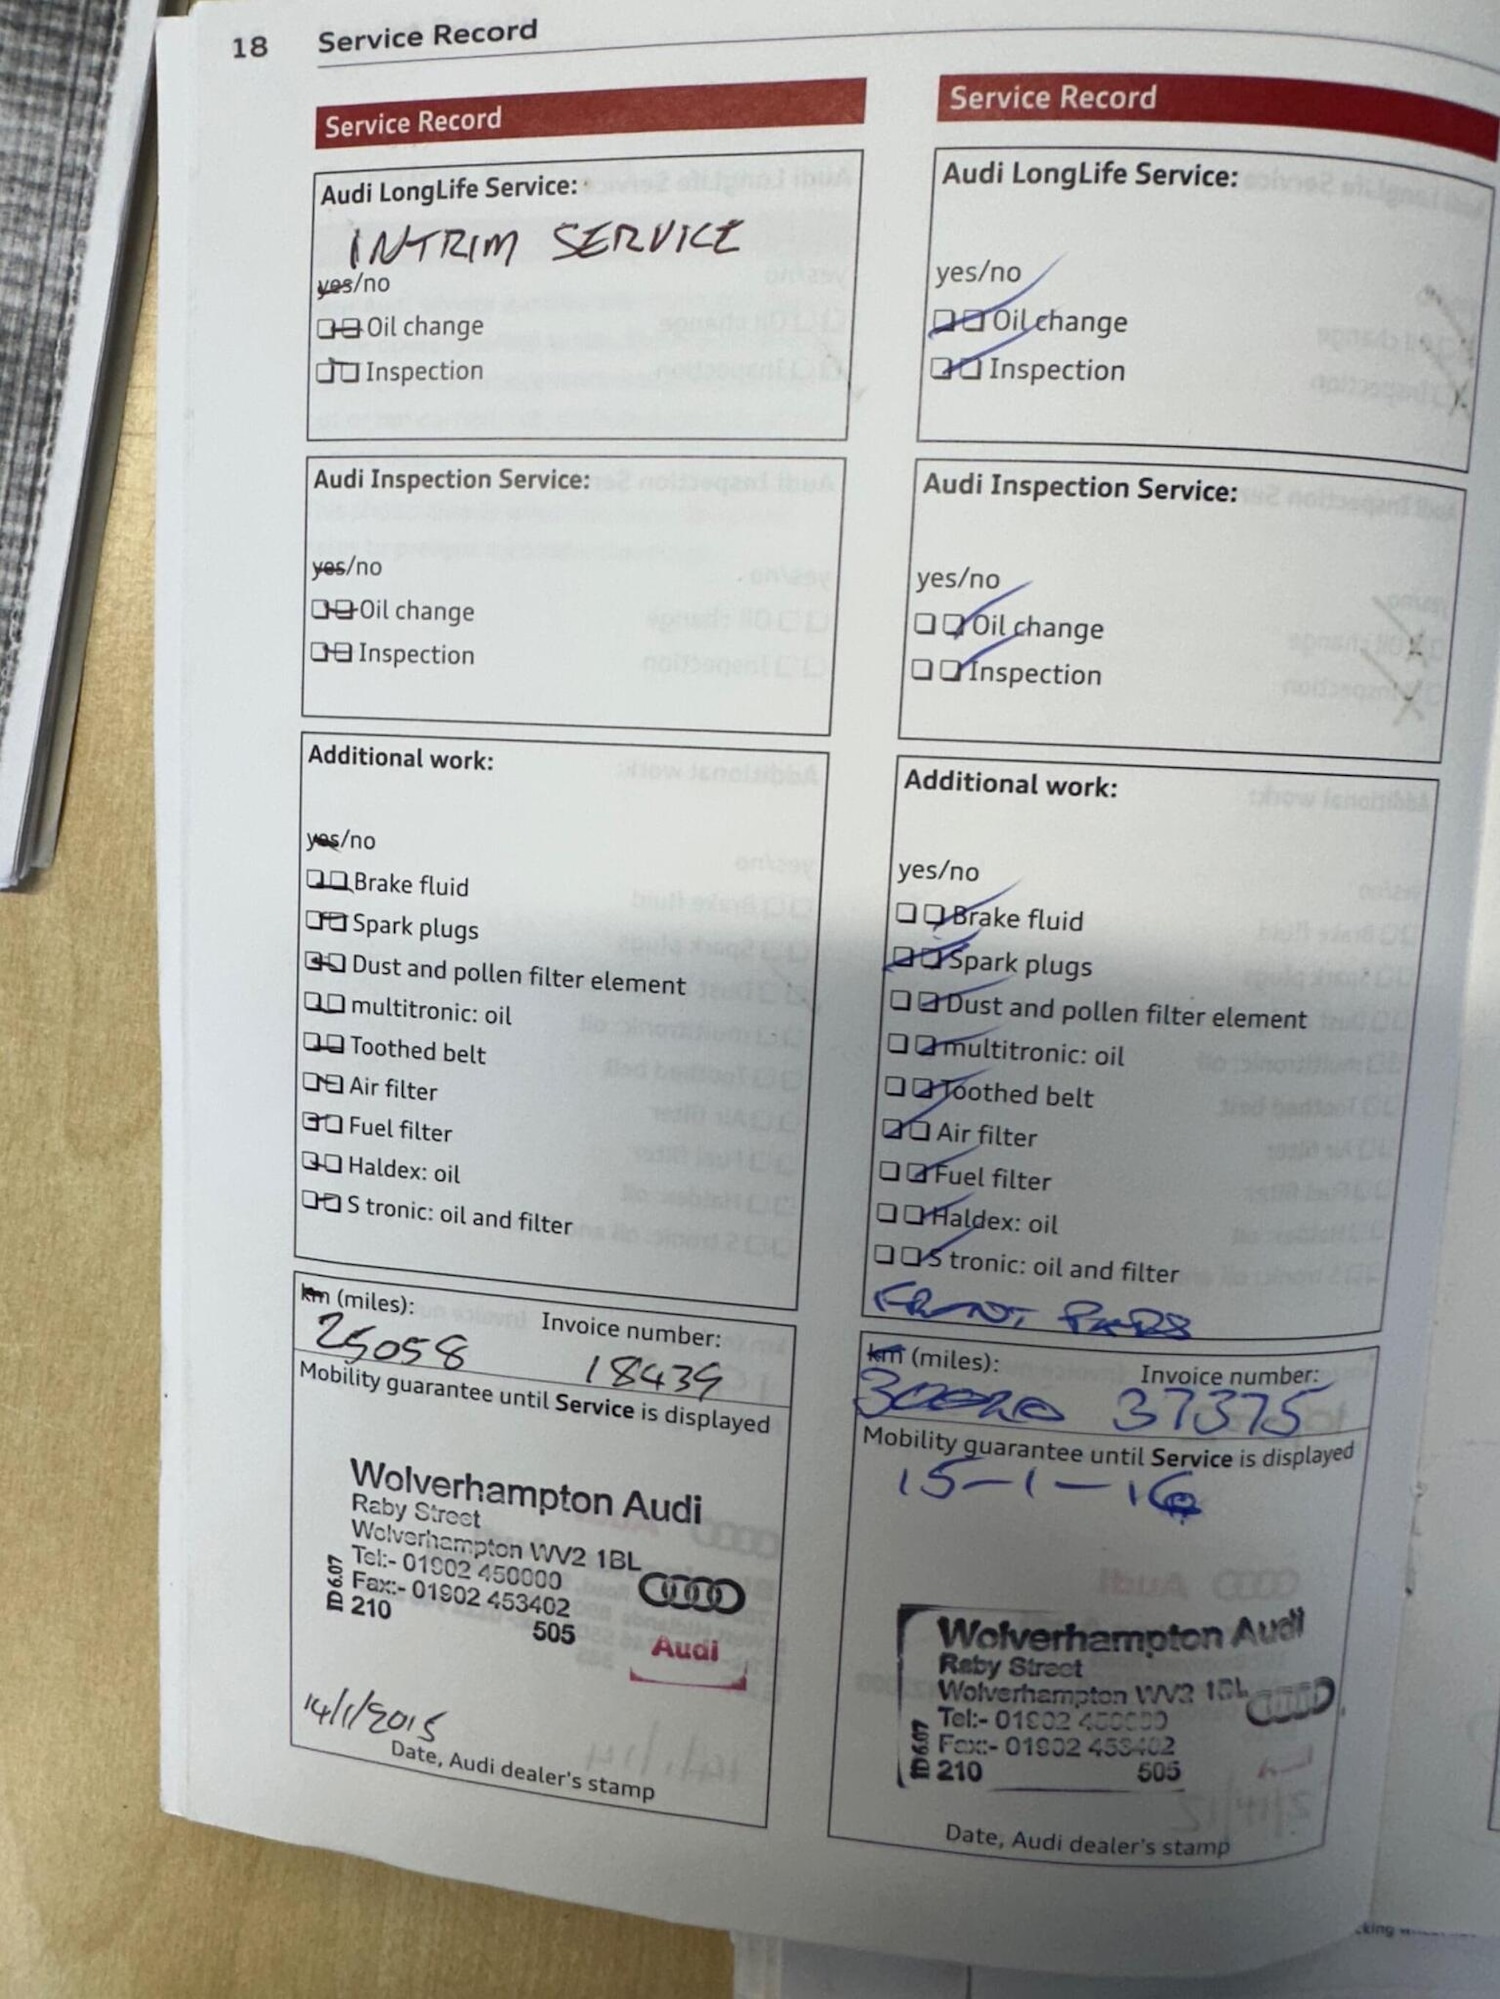 18 Service Record
Service Record
Audi LongLife Service:
INTRIM SERVICE
yes/no
Oil change
Inspection
Audi Inspection Service:
yes/no
Oil change
Inspection
Additional work:
yes/no
Brake fluid
Spark plugs
Dust and pollen filter element
multitronic: oil
Toothed belt
Air filter
Fuel filter
Haldex: oil
S tronic: oil and filter
km (miles): Invoice number:
25058 18439
Mobility guarantee until Service is displayed
Wolverhampton Audi
Raby Street
Wolverhampton WV2 1BL
Tel:- 01902 450000
Fax:- 01902 453402
210 505
Audi
14/1/2015
Date, Audi dealer's stamp
Service Record
Audi LongLife Service:
yes/no
Oil change
Inspection
Audi Inspection Service:
yes/no
Oil change
Inspection
Additional work:
yes/no
Brake fluid
Spark plugs
Dust and pollen filter element
multitronic: oil
Toothed belt
Air filter
Fuel filter
Haldex: oil
S tronic: oil and filter
FRONT PADS
km (miles): Invoice number:
37375
Mobility guarantee until Service is displayed
15-1-16
Wolverhampton Audi
Raby Street
Wolverhampton WV2 1BL
Tel:- 01902 450000
Fax:- 01902 453402
210 505
Date, Audi dealer's stamp